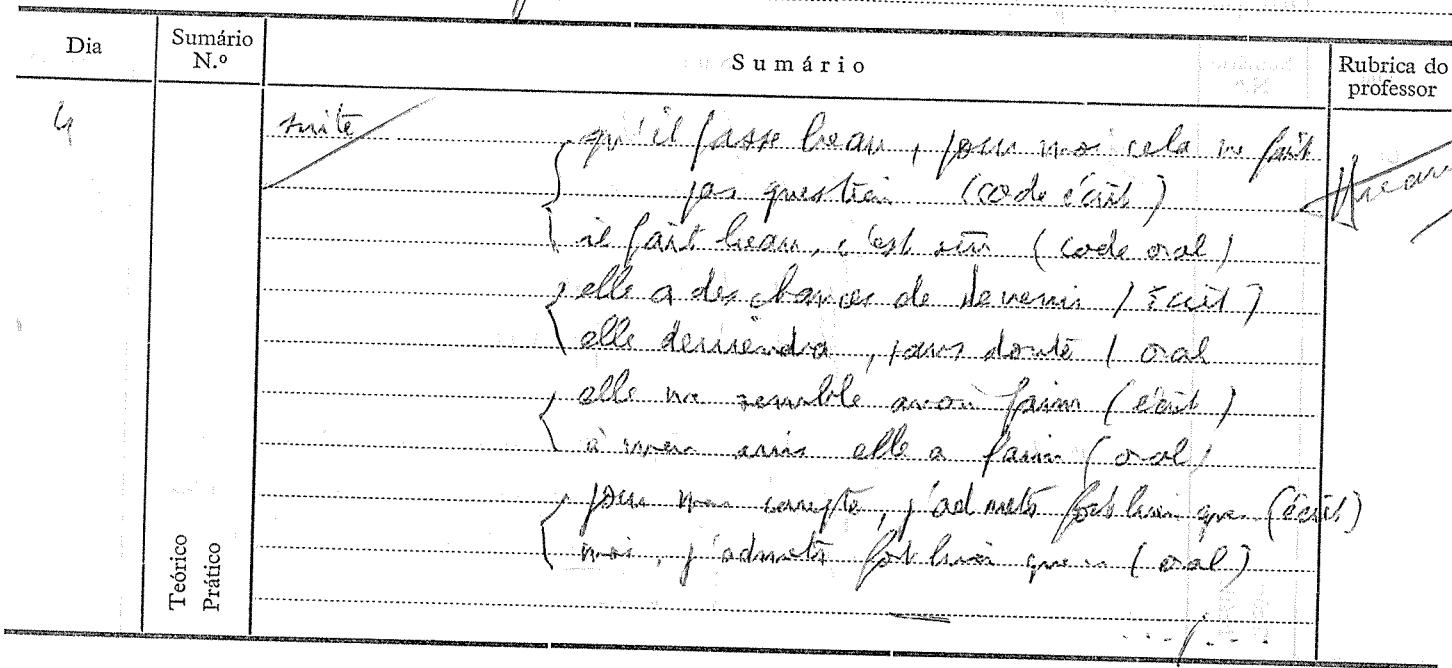 Dia
Sumário N.º
Sumário
Rubrica do professor
4
suite
qu'il fasse beau, pour moi cela ne fait
pas question (code écrit)
il fait beau, c'est sûr (code oral)
elle a des chances de devenir (écrit)
elle deviendra, sans doute (oral
elle me semble avoir faim (écrit)
à mon avis elle a faim (oral)
pour mon compte, j'admets fort bien que (écrit)
moi, j'admets fort bien que (oral)
Teórico
Prático